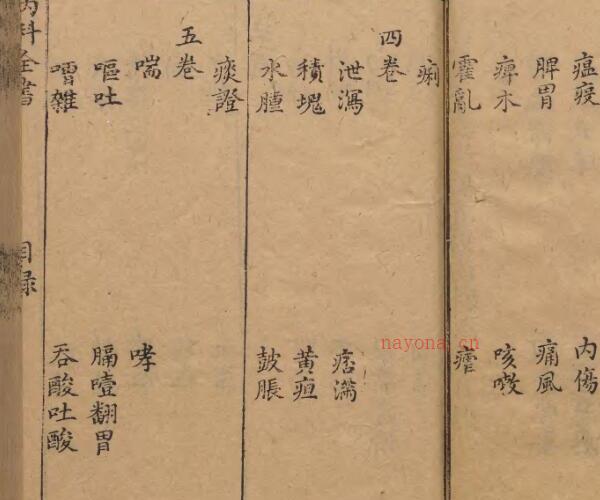 瘟疫 內傷
脾胃 痛風
痺木 咳嗽
霍亂 瘧
痢
四卷
泄瀉 痞滿
積塊 黃疸
水腫 鼓脹
痰證
五卷
喘 哮
嘔吐 膈噎翻胃
嘈雜 吞酸吐酸
內科全書 目録
nayona.cn